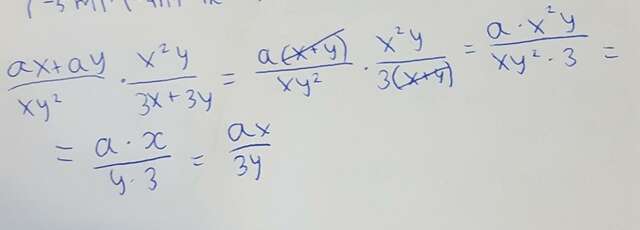 (ax+ay)/(xy²) · (x²y)/(3x+3y) = (a(x+y))/(xy²) · (x²y)/(3(x+y)) = (a·x²y)/(xy²·3) =
= (a·x)/(y·3) = (ax)/(3y)